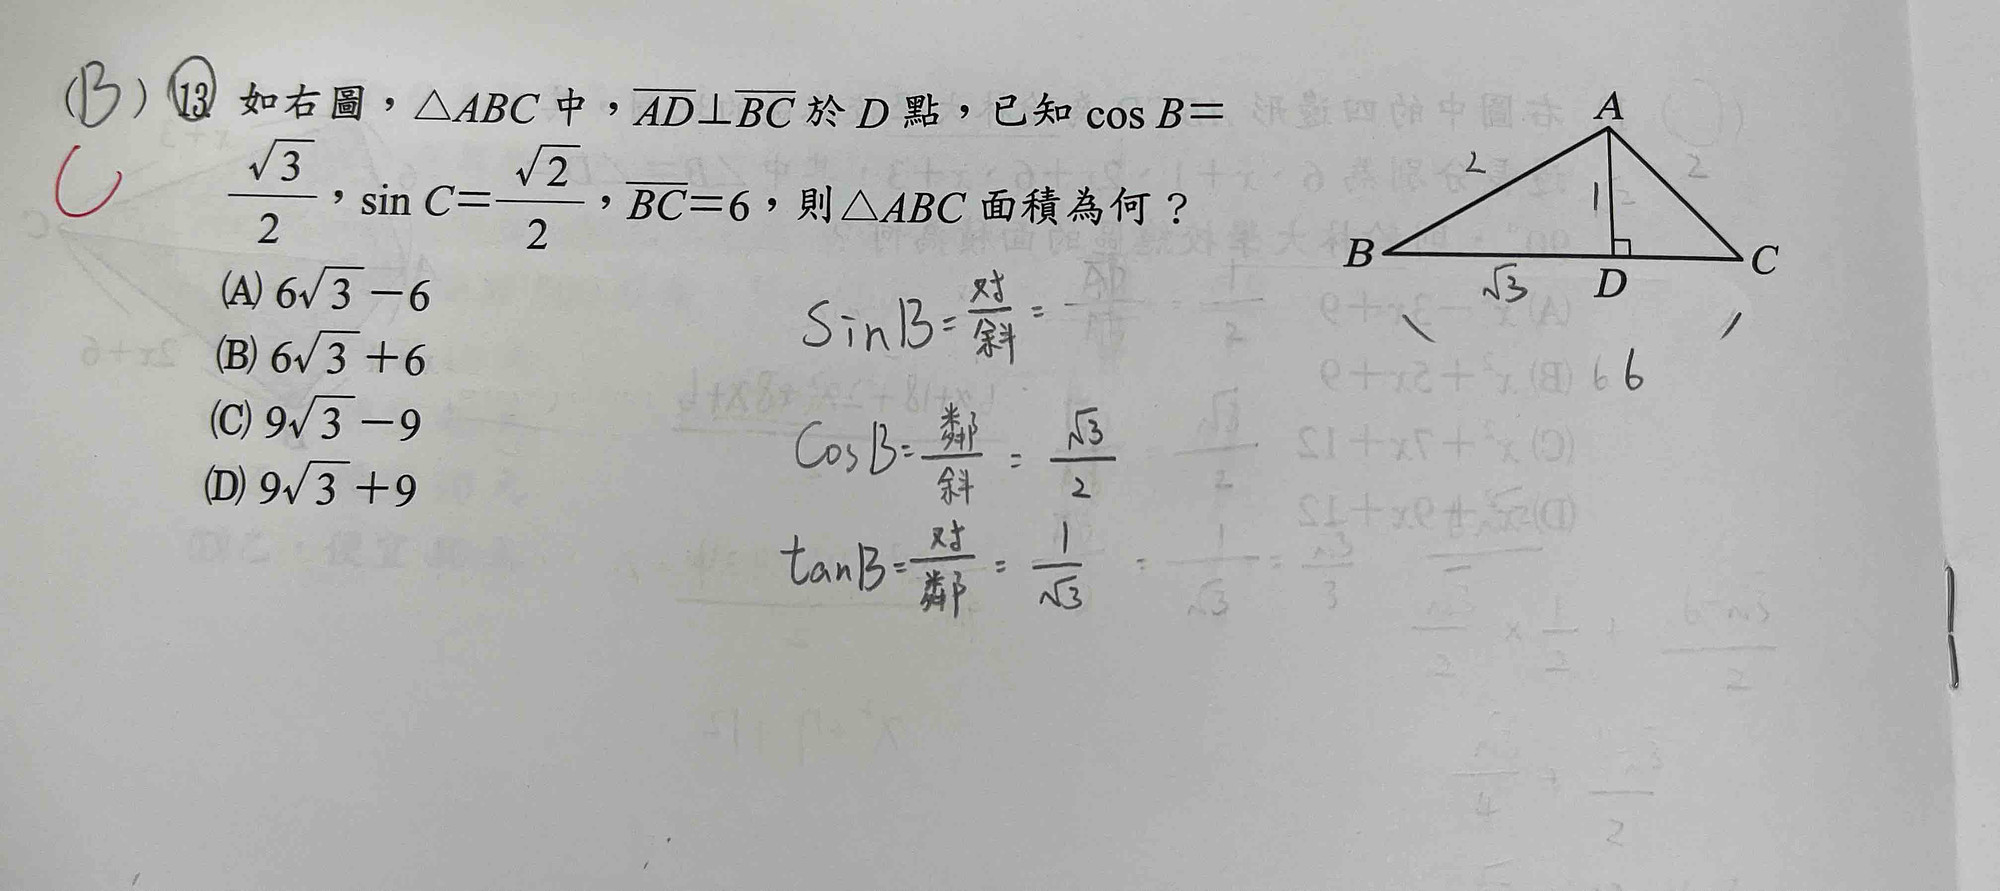 (B) 13 如右圖，△ABC 中，AD⊥BC 於 D 點，已知 cos B=
C
√3/2，sin C=√2/2，BC=6，則△ABC 面積為何？
(A) 6√3－6
(B) 6√3＋6
(C) 9√3－9
(D) 9√3＋9
A
2
1
B
√3
D
C
6
sinB=对/斜=
cosB=鄰/斜=√3/2
tanB=对/鄰=1/√3